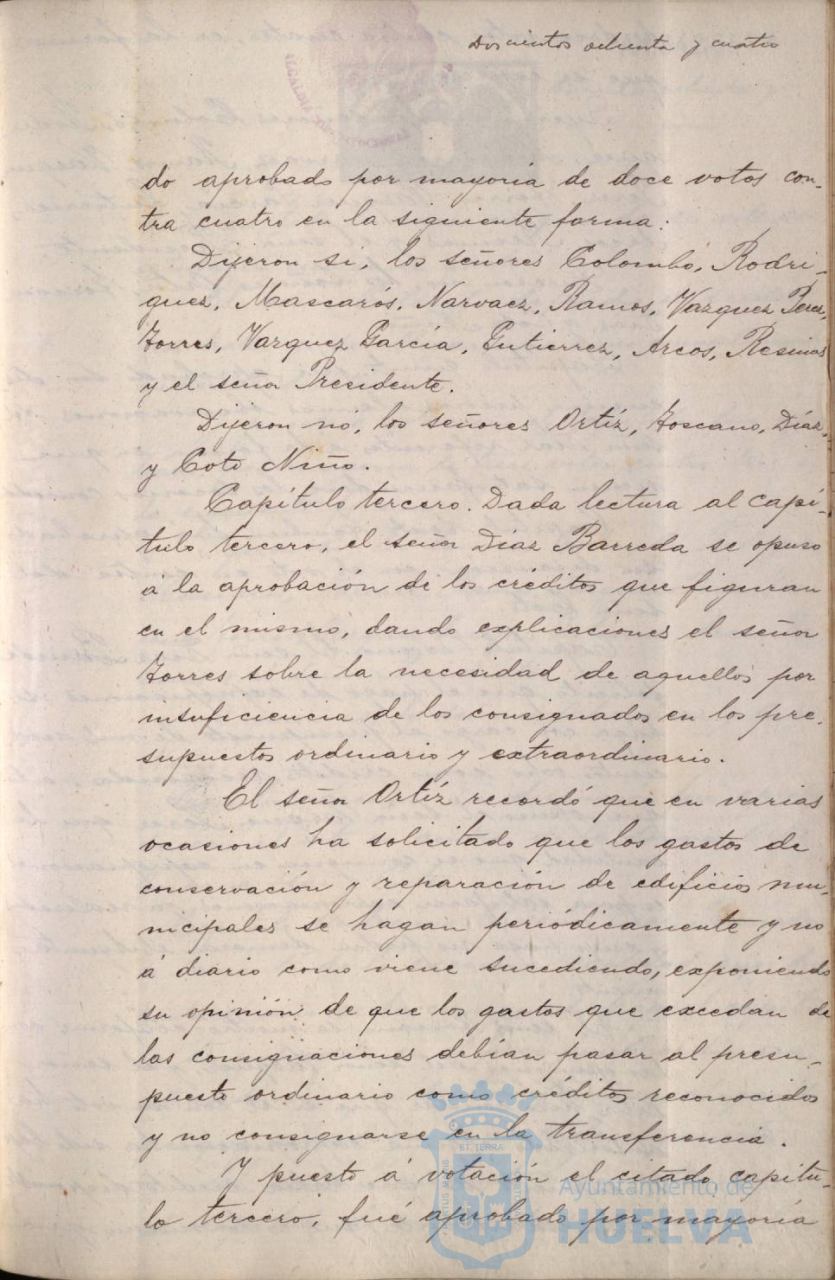 Doscientos ochenta y cuatro
do aprobado por mayoría de doce votos con-
tra cuatro en la siguiente forma:
Dijeron si, los señores Colombó, Rodri-
guez, Mascarós, Narvaez, Ramos, Vazquez Perez,
Torres, Vazquez García, Gutierrez, Arcos, Resinas
y el señor Presidente.
Dijeron nó, los señores Ortíz, Toscano, Díaz,
y Coto Niño.
Capítulo tercero. Dada lectura al capí-
tulo tercero, el señor Díaz Barreda se opuso
á la aprobación de los créditos que figuran
en el mismo, dando explicaciones el señor
Torres sobre la necesidad de aquellos por
insuficiencia de los consignados en los pre-
supuestos ordinario y extraordinario.
El señor Ortíz recordó que en varias
ocasiones ha solicitado que los gastos de
conservación y reparación de edificios mu-
nicipales se hagan periódicamente y no
á diario como viene sucediendo, exponiendo
su opinión de que los gastos que excedan de
las consignaciones debían pasar al presu-
puesto ordinario como créditos reconocidos
y no consignarse en la transferencia.
Y puesto á votación el citado capítu-
lo tercero, fué aprobado por mayoría
Ayuntamiento de
HUELVA